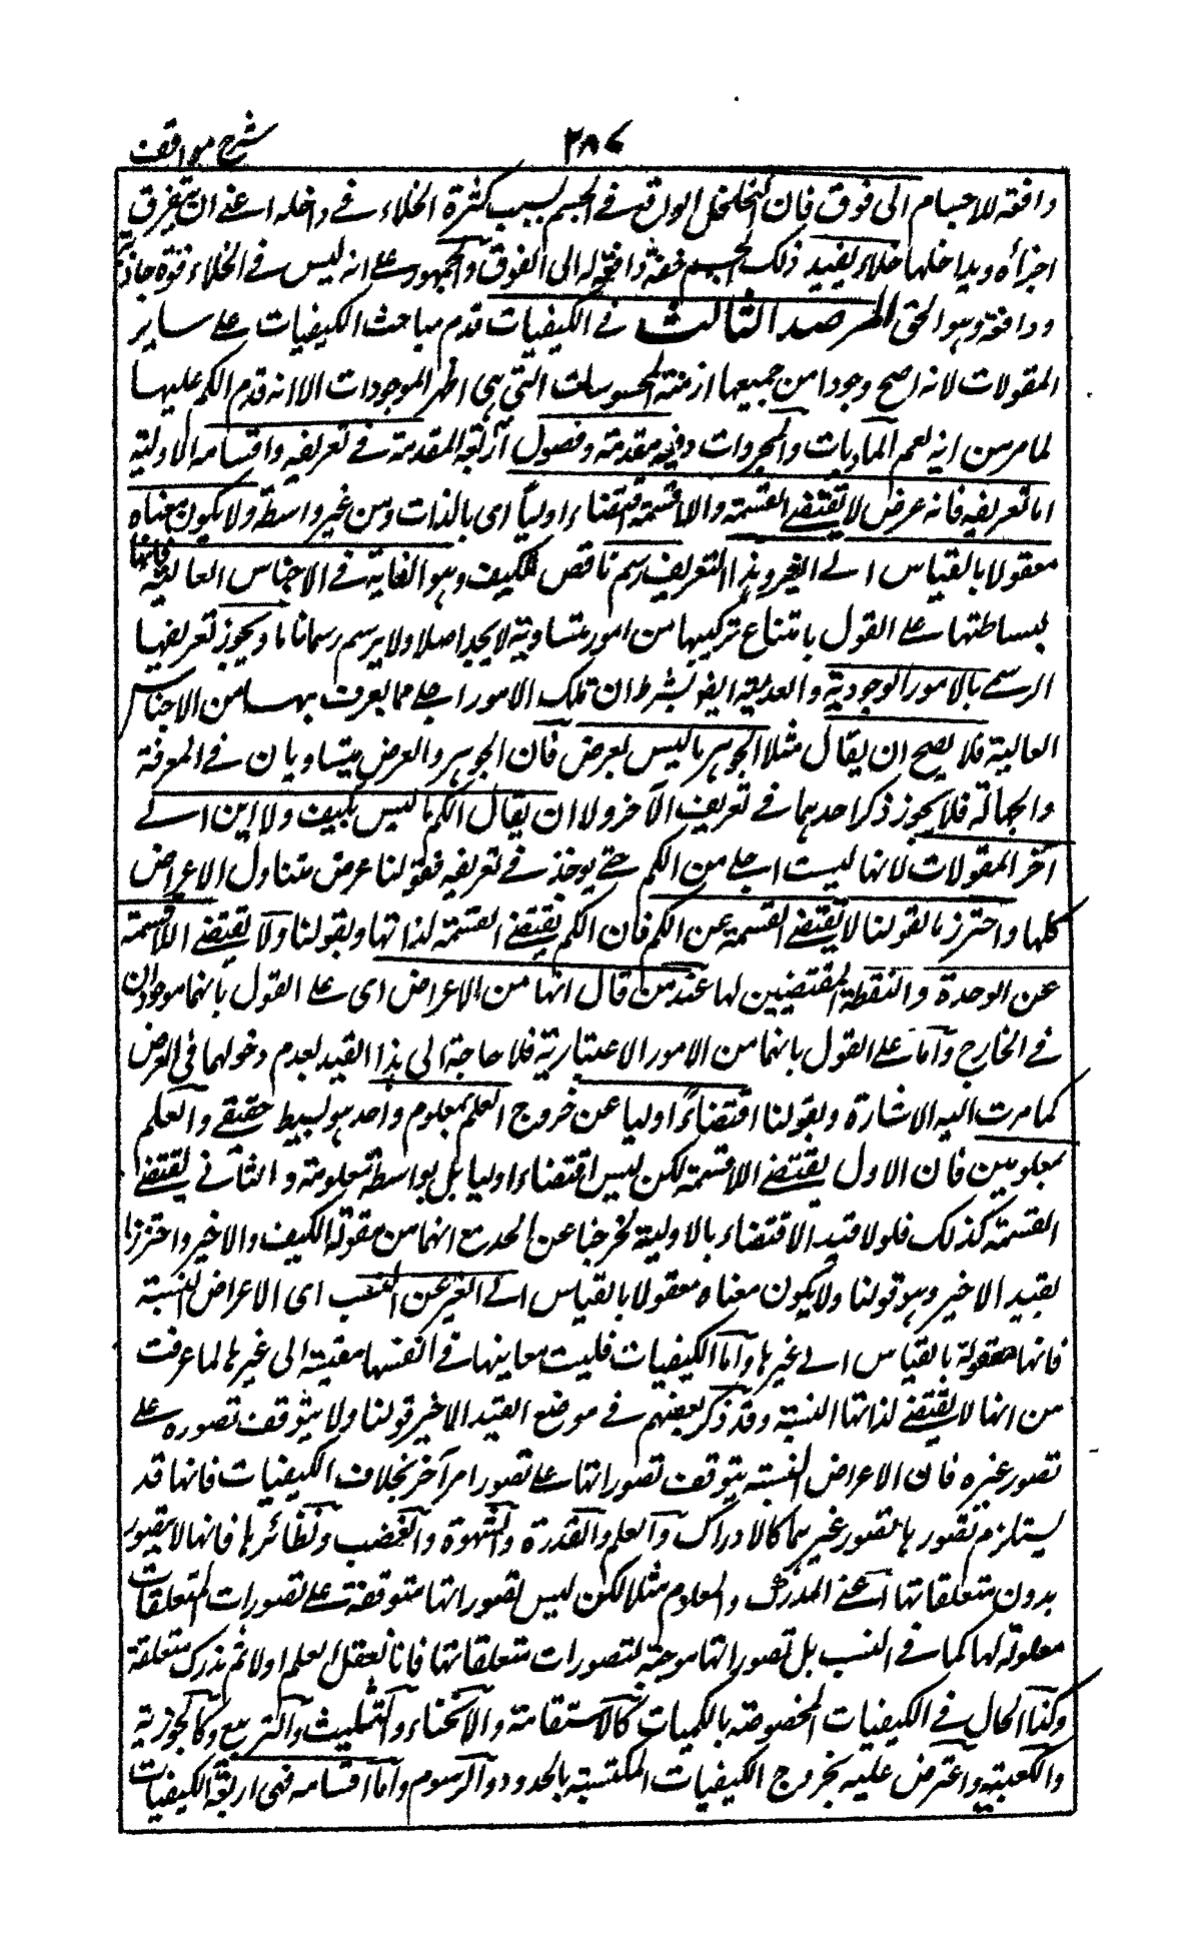 شرح مواقف
٢٨٧
دافعة للاجسام الى فوق فان التخلخل الواقع فى الجسم بسبب كثرة الخلاء فى داخله اعنى ان يتفرق
اجزاؤه ويداخلها خلاء يفيد ذلك الجسم خفة دافعة له الى الفوق والجمهور على انه ليس فى الخلاء قوة جاذبة
ودافعة وهو الحق المرصد الثالث فى الكيفيات قدم مباحث الكيفيات على ساير
المقولات لانه اصح وجودا من جميعها اذ منه المحسوسات التى هى اظهر الموجودات الا انه قدم الكم عليها
لما مر من انه يعم الماديات والمجردات وفيه مقدمة وفصول اربعة المقدمة فى تعريفه واقسامه الاولية
اما تعريفه فانه عرض لا يقتضى القسمة واللاقسمة اقتضاء اوليا اى بالذات ومن غير واسطة ولا يكون معناه
معقولا بالقياس الى الغير وهذا التعريف رسم ناقص للكيف وهو الغاية فى الاجناس العالية فانها
لبساطتها على القول بامتناع تركيبها من امور متساوية لا يحد اصلا ولا يرسم رسما تاما ويجوز تعريفها
الرسمى بالامور الوجودية والعدمية ايضا بشرط ان تلك الامور اجلى مما يعرف بها من الاجناس
العالية فلا يصح ان يقال مثلا الجوهر ما ليس بعرض فان الجوهر والعرض متساويان فى المعرفة
والجهالة فلا يجوز ذكر احدهما فى تعريف الآخر ولا ان يقال الكم ما ليس بكيف ولا اين الى
آخر المقولات لانها ليست اجلى من الكم حتى يوخذ فى تعريفه فقولنا عرض متناول الاعراض
كلها واحترزنا بقولنا لا يقتضى القسمة عن الكم فان الكم يقتضى القسمة لذاتها وبقولنا ولا يقتضى اللاقسمة
عن الوحدة والنقطة المقتضيين لها عند من قال انها من الاعراض اى على القول بانهما موجودان
فى الخارج واما على القول بانهما من الامور الاعتبارية فلا حاجة الى هذا القيد لعدم دخولهما فى العرض
كما مرت اليه الاشارة وبقولنا اقتضاءً اوليا عن خروج العلم بمعلوم واحد هو بسيط حقيقى والعلم
بمعلومين فان الاول يقتضى اللاقسمة لكن ليس اقتضاء اوليا بل بواسطة معلومة والثانى يقتضى
القسمة كذلك فلولا قيد الاقتضاء بالاولية لخرجنا عن الحد مع انهما من مقولة الكيف والاخير واحترزنا
بقيد الاخير وهو قولنا ولا يكون معناه معقولا بالقياس الى الغير عن النسب اى الاعراض النسبية
فانها معقولة بالقياس الى غيرها واما الكيفيات فليست معاينها فى انفسها مقيسة الى غيرها لما عرفت
من انها لا يقتضى لذاتها النسبة وقد ذكر بعضهم فى موضع القيد الاخير قولنا ولا يتوقف تصوره على
تصور غيره فان الاعراض النسبية يتوقف تصوراتها على تصور امر آخر بخلاف الكيفيات فانها قد
يستلزم تصورها تصور غيرها كالادراك والعلم والقدرة والشهوة والغضب ونظائرها فانها لا يتصور
بدون متعلقاتها اعنى المدرك والمعلوم مثلا لكن ليس تصوراتها متوقفة على تصورات المتعلقات
معلولة لها كما فى النسب بل تصوراتها موجبة لتصورات متعلقاتها فانا نعقل العلم اولا ثم ندرك متعلقه
وكذا الحال فى الكيفيات المخصوصة بالكميات كالاستقامة والانحناء والتثليث والتربيع وكالجذرية
والكعبية واعترض عليه بخروج الكيفيات المكتسبة بالحدود والرسوم واما اقسامه فهى اربعة الكيفيات